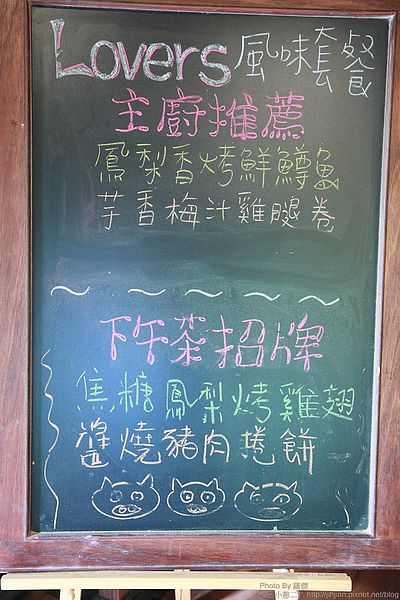 Lovers 風味套餐
主廚推薦
鳳梨香烤鮮鱒魚
芋香梅汁雞腿卷
下午茶招牌
焦糖鳳梨烤雞翅
醬燒豬肉捲餅
Photo By 羅傑
http://jihjian.pixnet.net/blog